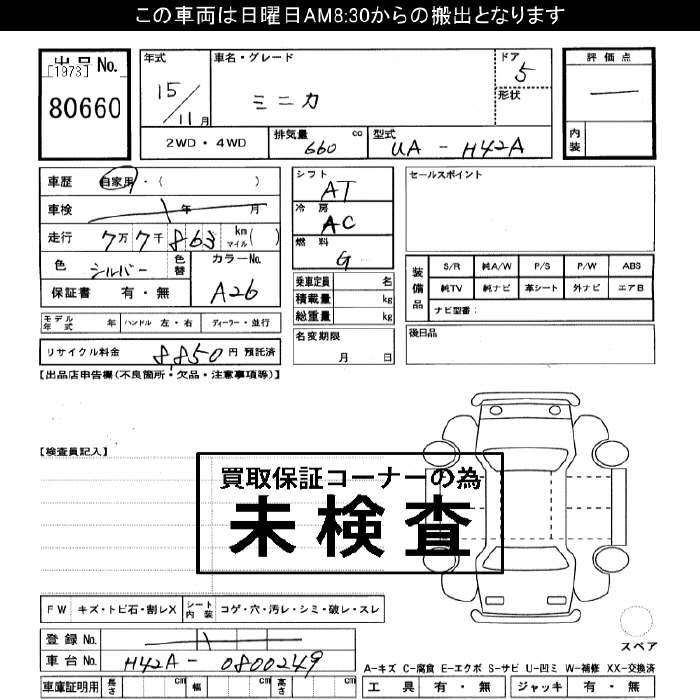 この車両は日曜日AM8:30からの搬出となります
出品 No.
[1973]
80660
年式
15/11月
車名・グレード
ミニカ
ドア
5
形状
評価点
—
内装
2WD・4WD
排気量 cc
660
型式
UA - H42A
車歴 自家用・( )
車検 年 月
走行 7万7千863 km マイル( )
色 シルバー 色替
カラーNo.
A26
保証書 有・無
モデル年式 年 ハンドル 左・右 ディーラー・並行
リサイクル料金 8,850円 預託済
シフト
AT
冷房
AC
燃料
G
乗車定員 名
積載量 kg
総重量 kg
名変期限
月 日
セールスポイント
装備品
S/R 純A/W P/S P/W ABS
純TV 純ナビ 革シート 外ナビ エアB
ナビ型番:
後日品
【出品店申告欄(不良箇所・欠品・注意事項等)】
【検査員記入】
買取保証コーナーの為
未検査
FW キズ・トビ石・割レX シート内装 コゲ・穴・汚レ・シミ・破レ・スレ
登録 No.
車台 No. H42A - 0800249
車庫証明用 長さ cm 幅 cm 高さ cm
スペア
A-キズ C-腐食 E-エクボ S-サビ U-凹ミ W-補修 XX-交換済
工具 有・無 ジャッキ 有・無